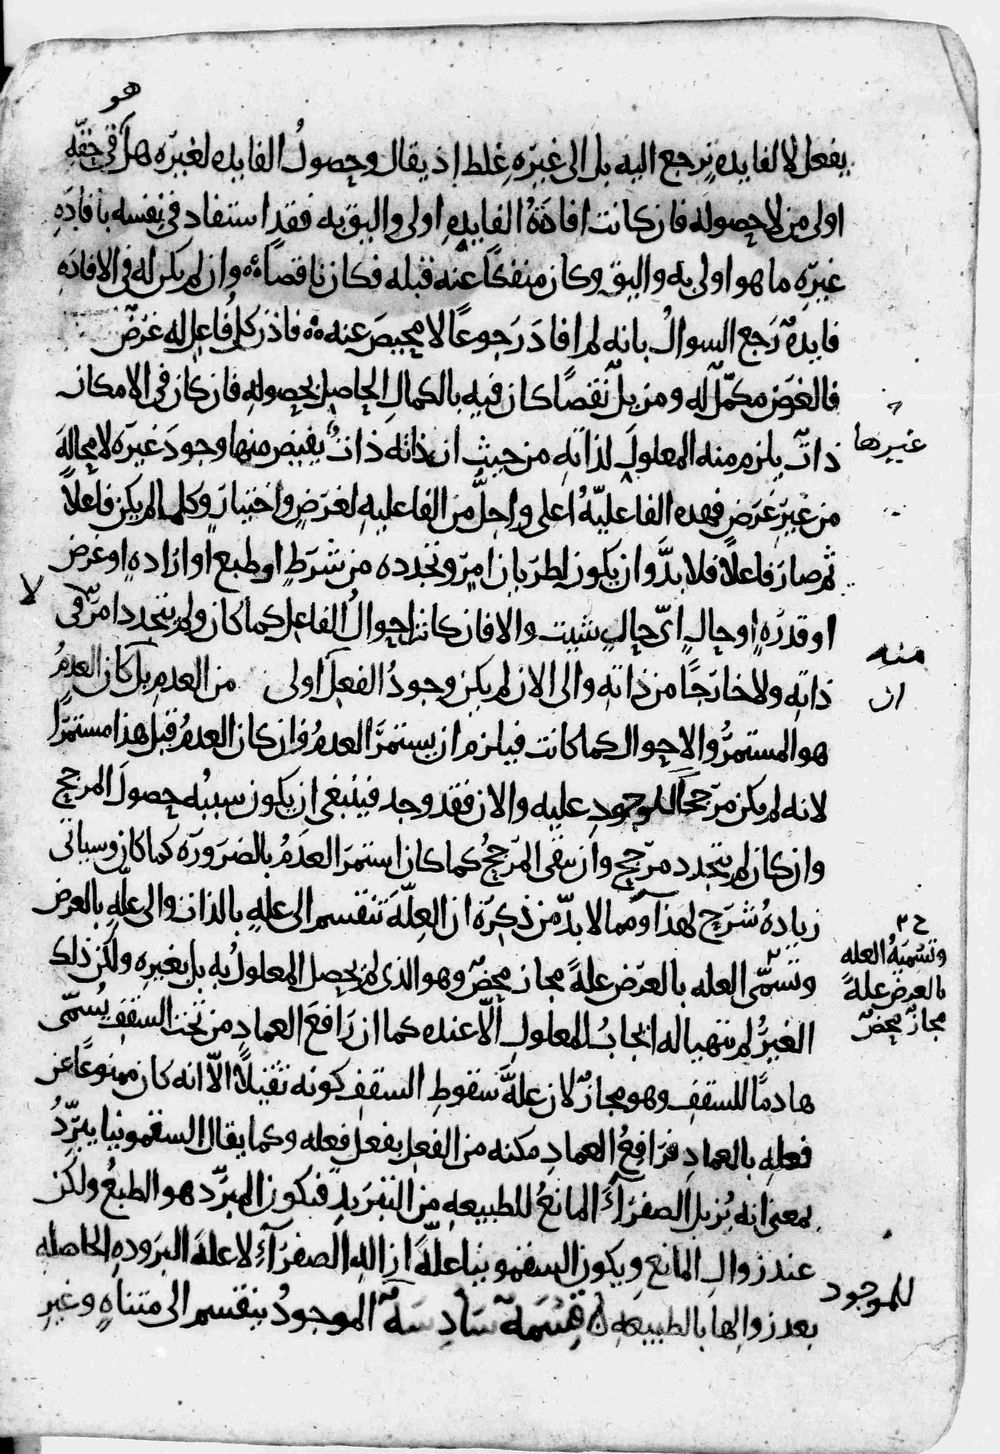 هو
يفعل لا لفايدة ترجع اليه بل الى غيره غلط اذ يقال وحصول الفايدة لغيره هل في حقه
اولى من لا حصوله فان كانت افادة الفايدة اولى واليق به فقد استفاد في نفسه بافادة
غيره ما هو اولى به واليق وكان منفكا عنه قبله فكان ناقصا وان لم يكن له في الافادة
فايدة رجع السوال بانه لم افاد رجوعا لا محيص عنه فاذن كل فاعل له غرض
فالغرض مكمل له ومزيل نقصا كان فيه بالكمال الحاصل بحصوله فان كان في الامكان
ذات يلزم منه المعلول لذاته من حيث ان ذاته ذات يفيض منها وجود غيره لا محالة
غيرها
من غير غرض فهذه الفاعلية اعلى واجل من الفاعلية لغرض واختيار وكلما لم يكن فاعلا
ثم صار فاعلا فلا بد وان يكون لطريان امر وتجدده من شرط او طبع او ارادة او غرض
او قدرة او حال اى حال شيت والا فان كانت احوال الفاعل كما كان ولم يتجدد امر في
لا
ذاته ولا خارجا من ذاته والى الان لم يكن وجود الفعل اولى من العدم بل كان العدم
منه
ان
هو المستمر والاحوال كما كانت فيلزم ان يستمر العدم فان كان العدم قبل هذا مستمرا
لانه لم يكن مرجح للوجود عليه والان فقد وجد فينبغي ان يكون سببه حصول المرجح
وان كان لم يتجدد مرجح وان بقى المرجح كما كان استمر العدم بالضرورة كما كان وسياتى
زيادة شرح لهذا ومما لا بد من ذكره ان العلة تنقسم الى علة بالذات والى علة بالعرض
وتسمى العلة بالعرض علة مجاز محض وهو الذى لم يحصل المعلول به بل بغيره ولكن ذلك
وتسمية العلة
بالعرض علة
مجاز محض
الغير لم يتهيا له ايجاب المعلول الا عنده كما ان رافع العماد من تحت السقف يسمى
هادما للسقف وهو مجاز لان علة سقوط السقف كونه ثقيلا الا انه كان ممنوعا عن
فعله بالعماد فرافع العماد مكنه من الفعل بفعل فعله وكما يقال السقمونيا يبرد
بمعنى انه يزيل الصفراء المانع للطبيعة من التبريد فيكون المبرد هو الطبع ولكن
عند زوال المانع ويكون السقمونيا علة ازالة الصفراء لا علة البرودة الحاصلة
بعد زوالها بالطبيعة قسمة سادسة الموجود ينقسم الى متناه وغير
للموجود